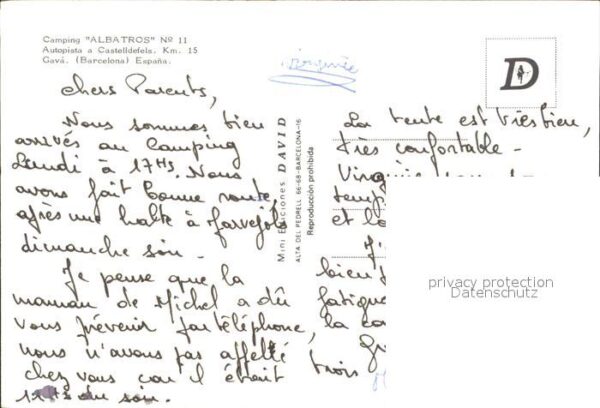 Camping "ALBATROS" Nº 11
Autopista a Castelldefels. Km. 15
Gavá. (Barcelona) España.
Virginie
D
chers Parents,
Nous sommes bien
arrivés au Camping
Lundi à 17Hs. Nous
avons fait bonne route
après une halte à Marvejols
dimanche soir.
Je pense que la
maman de Michel a dû
vous prévenir par téléphone,
nous n'avons pas appellé
chez vous car il était
11Hs du soir.
Mini Ediciones DAVID
ALTA DEL PEDRELL 66-68-BARCELONA-16
Reproducción prohibida
La tente est très bien,
très confortable -
Virginie
temp
et l
J'
bien
fatigue
la ca
trois
privacy protection
Datenschutz